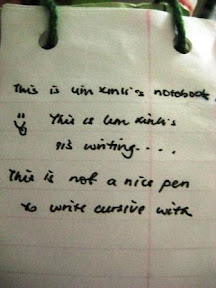 This is Lim Xinli's notebook.
This is Lim Xinli's
sis writing....
This is not a nice pen
to write cursive with